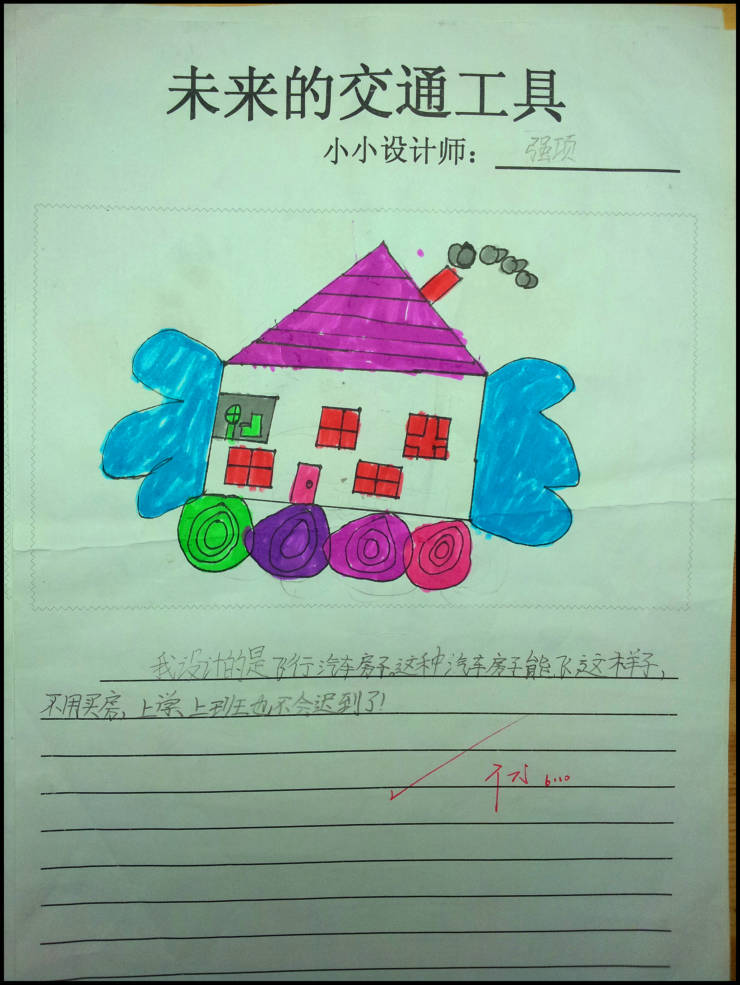 未来的交通工具
小小设计师：强项
我设计的是飞行汽车房子,这种汽车房子能飞,这样子,
不用买房,上学、上班也不会迟到了!
6.10